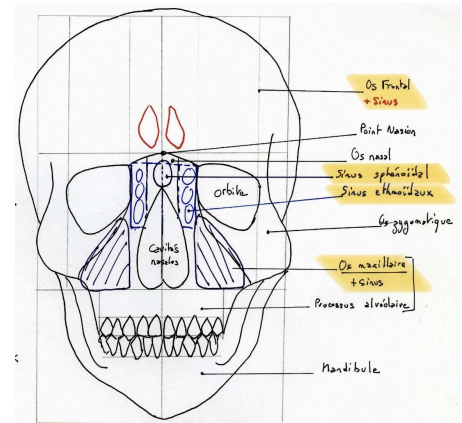 Os Frontal
+ Sinus
Point Nasion
Os nasal
Sinus sphénoïdal
Sinus ethmoïdaux
Orbite
Os zygomatique
Cavités
nasales
Os maxillaire
+ sinus
Processus alvéolaire
Mandibule